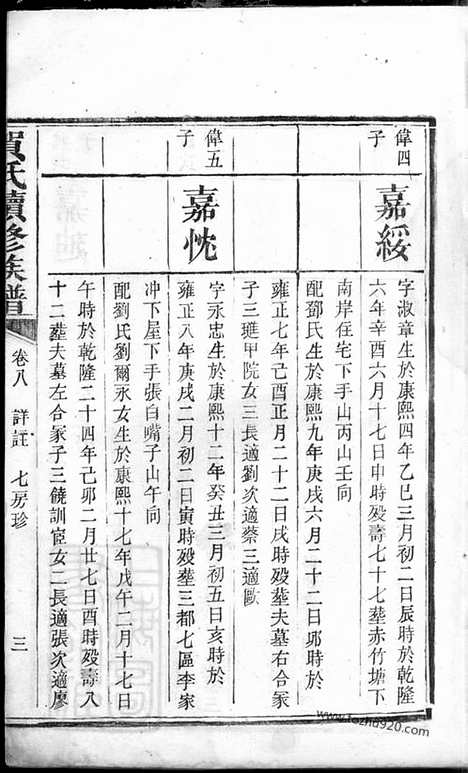 偉四
子
嘉綏
字淑章生於康熙四年乙巳三月初二日辰時於乾隆
六年辛酉六月十七日申時殁壽七十七塟赤竹塘下
南岸住宅下手山丙山壬向
配鄧氏生於康熙九年庚戌六月二十二日夘時於
雍正七年己酉正月二十二日戌時殁塟夫墓右合冢
子三璡甲院女三長適劉次適蔡三適歐
偉五
子
嘉忱
字永忠生於康熙十二年癸丑三月初五日亥時於
雍正八年庚戌二月初二日寅時殁塟三都七區李家
冲下屋下手張白嘴子山午向
配劉氏劉爾永女生於康熙十七年戊午二月十七日
午時於乾隆二十四年己卯二月廿七日酉時殁壽八
十二塟夫墓左合冢子三饒訓宦女二長適張次適廖
賀氏續修族譜
卷八 詳註 七房珍 三
www.fozhu920.com